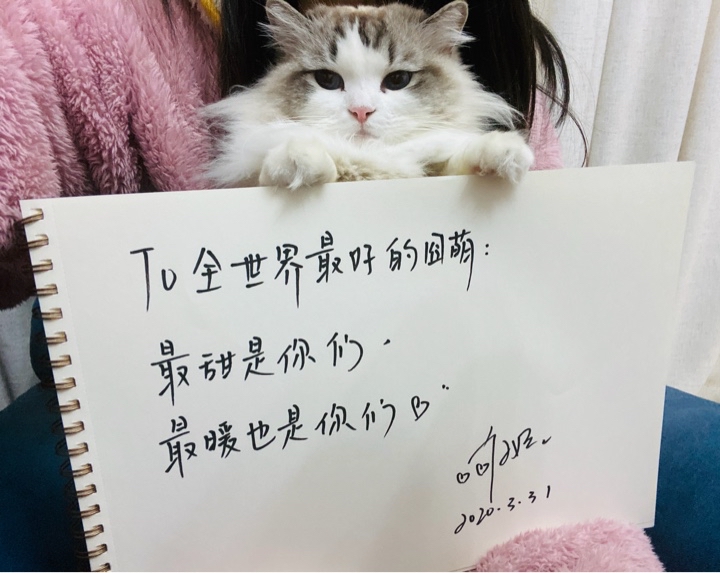 To 全世界最好的囧萌：
最甜是你们．
最暖也是你们
2020.3.31